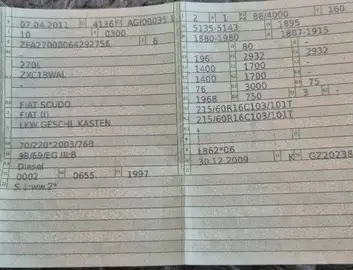 07.04.2011 4136 AGI00035
10 0300
ZFA27000064292756 6
270L
ZXC1BWAL
-
FIAT SCUDO
FIAT (I)
LKW GESCHL.KASTEN
70/220*2003/76B
98/69/EG III;B
Diesel
0002 0655 1997
S.1:ww.2*
2 1 88/4000 160
5135-5143 1895
1880-1980 1807-1915
80
196 2932 2932
1400 1700
1400 1700
76 3000 75
1968 750 3 -
215/60R16C103/101T
215/60R16C103/101T
1862*06
30.12.2009 K GZ20238